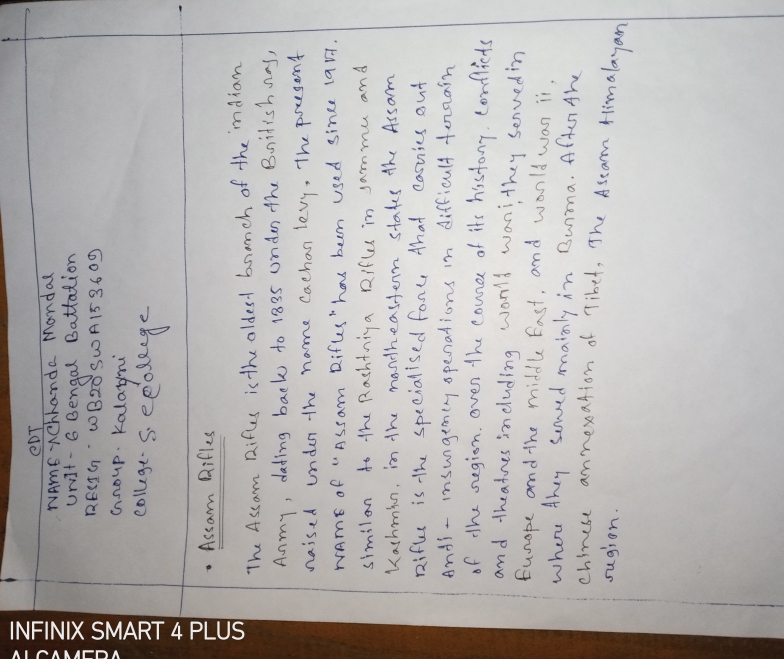 CDT
NAME → Chhanda Mondal
UNIT - 6 Bengal Battalion
REGIG: WB20SWA153609
Group: Kalaxmi
College - S. E College
• Assam Rifles
The Assam Rifles is the oldest branch of the indian
Army, dating back to 1835 under the British raj,
raised under the name Cachar levy. The present
NAME of "Assam Rifles" has been used since 1917.
similar to the Rashtriya Rifles in jammu and
Kashmir. in the northeastern states the Assam
Rifles is the specialised force that carries out
Anti - insurgency operations in difficult terrain
of the region. over the course of its history. Conflicts
and theatres including world war i, they served in
Europe and the middle East, and world war ii,
where they served mainly in Burma. After the
Chinese annexation of Tibet, The Assam Himalayan
region.
INFINIX SMART 4 PLUS
AI CAMERA